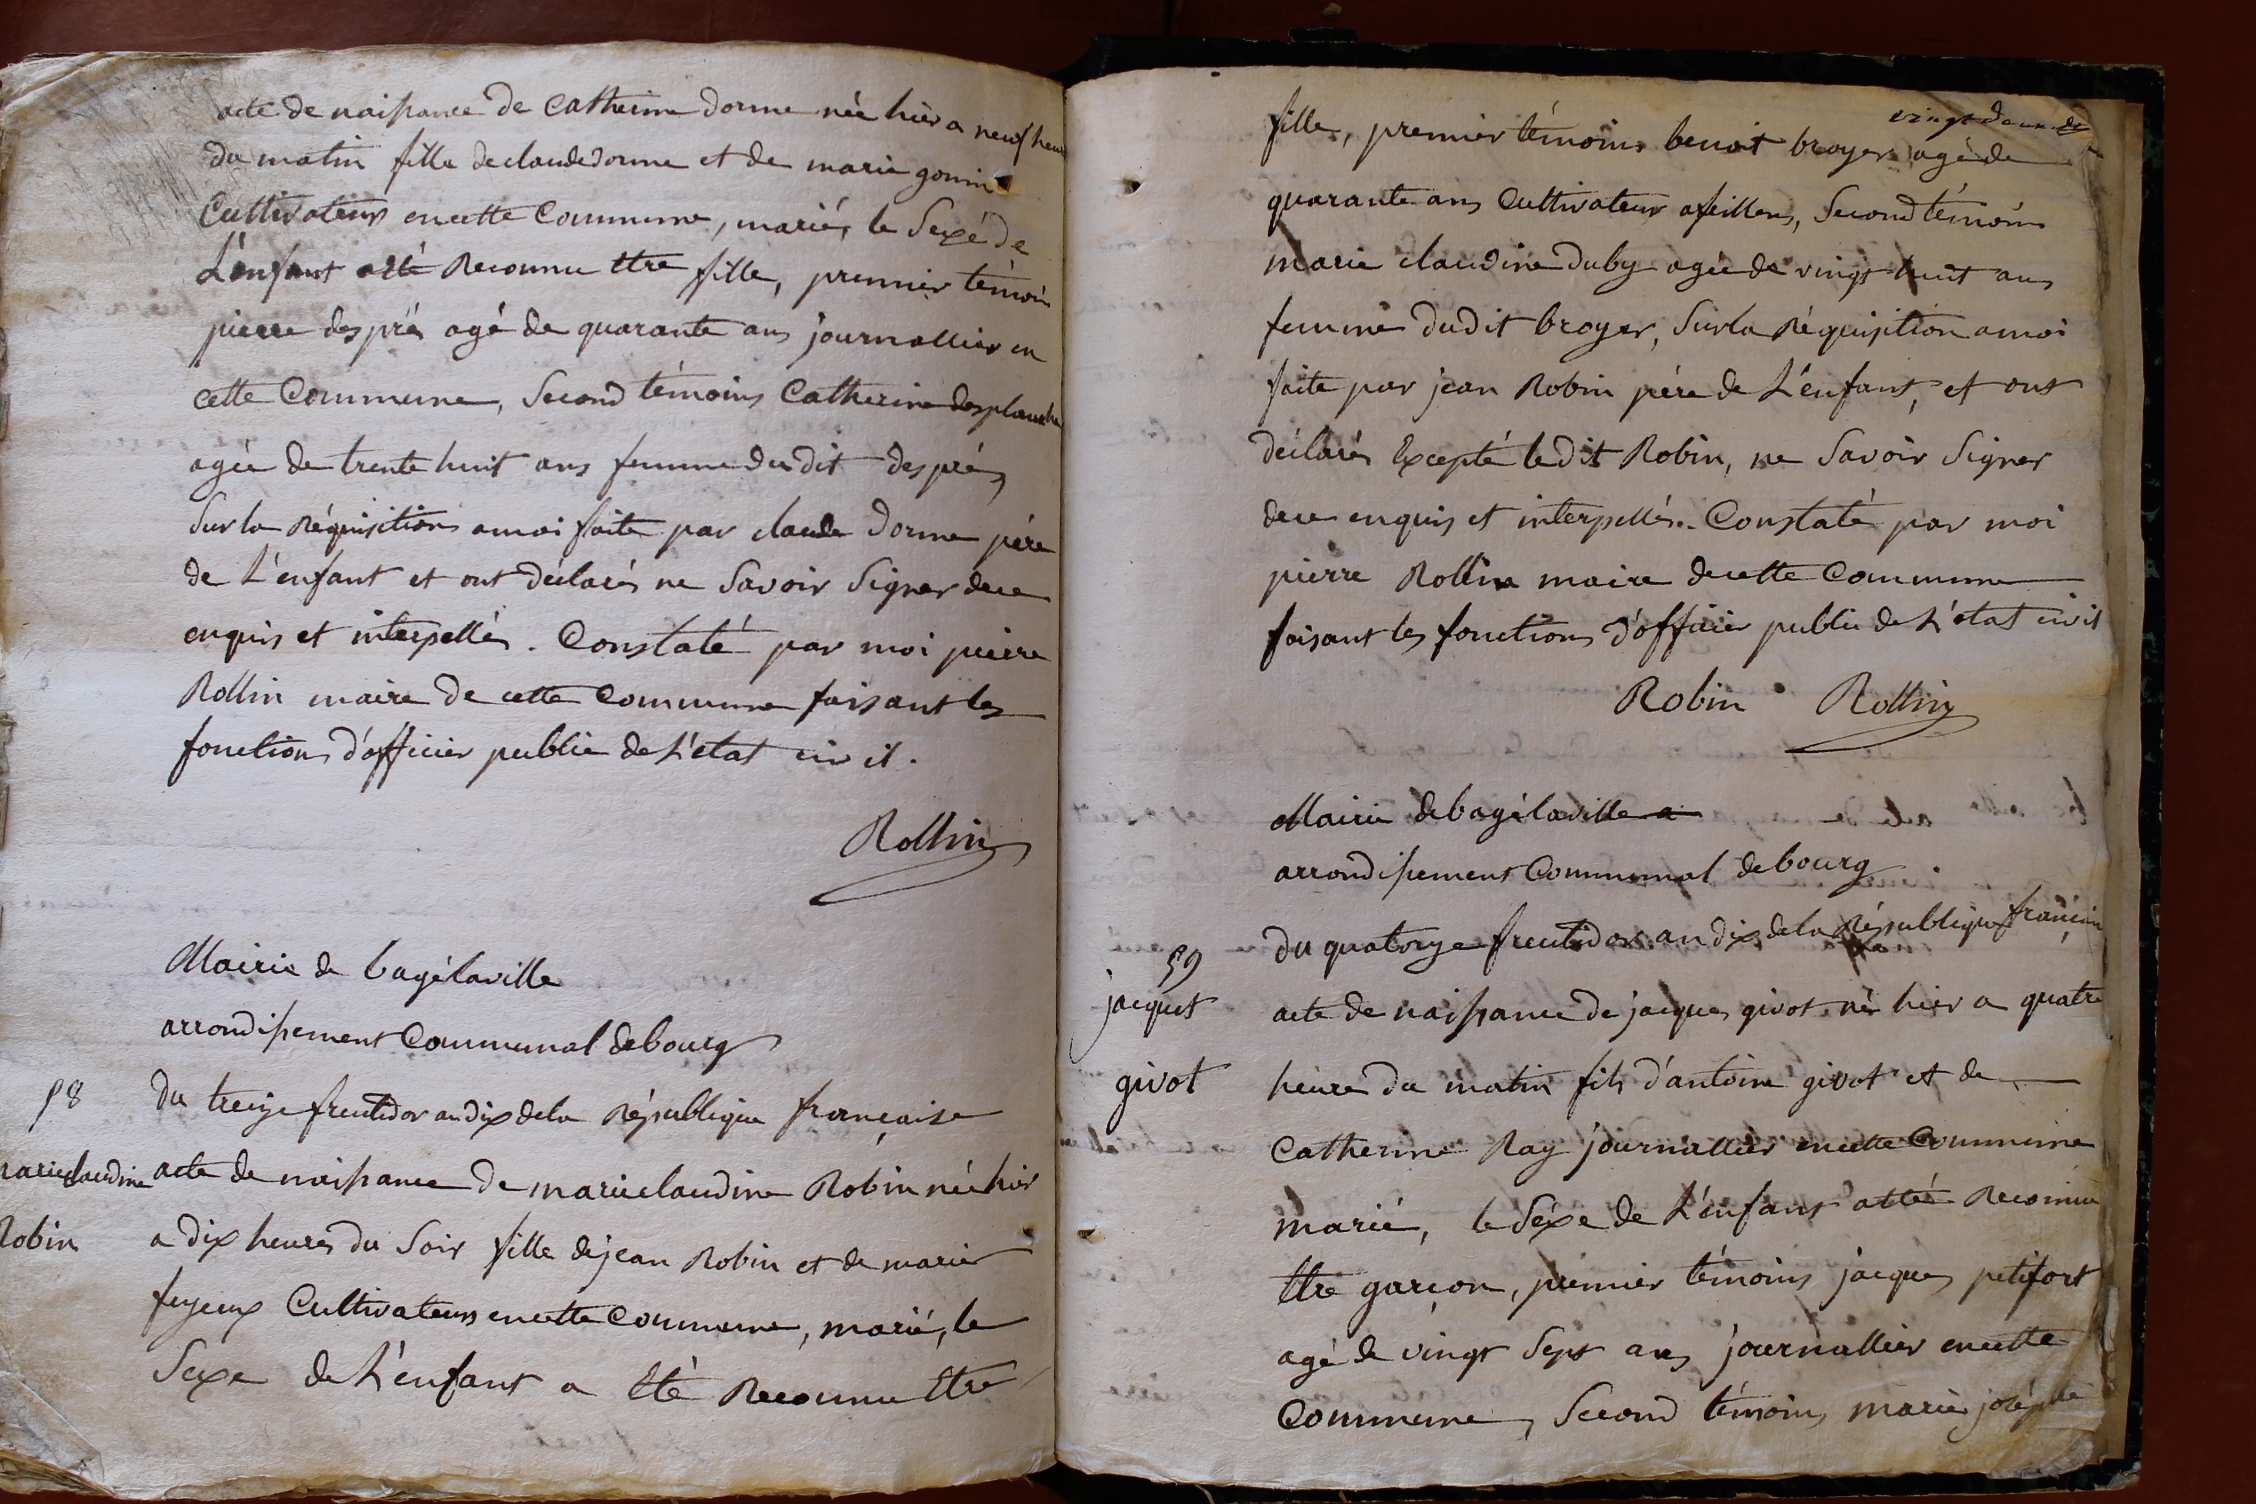 acte de naissance de Catherine dorme née hier a neuf heure
du matin fille de claude dorme et de marie gonin
Cultivateurs en cette Commune, mariés, le Sexe de
L'enfant a été Reconnu Etre fille, premier témoin
pierre després agé de quarante ans journallier en
cette Commune, Second témoins Catherine desplanche
agée de trente huit ans femme du dit després
Sur la Réquisition a moi faite par claude dorme pére
de L'enfant et ont déclarés ne Savoir Signer de ce
enquis et interpellés. Constaté par moi pierre
Rollin maire de cette Commune faisant les
fonctions d'officier public de L'etat civil.
Rollin
Mairie de bagélaville
arrondissement Communal de bourg
58
du treize fructidor an dix de la République française
marie claudine
Robin
acte de naissance de marie claudine Robin née hier
a dix heures du Soir fille de jean Robin et de marie
feyeux Cultivateurs en cette Commune, marié, le
Sexe de L'enfant a Eté Reconnu Etre
vingt deux
fille, premier témoins benoit broyer agé de
quarante ans Cultivateur a feillens, Second témoins
marie claudine duby agée de vingt huit ans
femme du dit broyer, Sur la Réquisition a moi
faite par jean Robin pére de L'enfant, et ont
déclarés Excepté le dit Robin, ne Savoir Signer
de ce enquis et interpellés. Constaté par moi
pierre Rollin maire de cette Commune
faisant les fonctions d'officier public de L'etat civil
Robin Rollin
Mairie de bagélaville
arrondissement Communal de bourg
du quatorze fructidor an dix de la République française
59
jacques
givot
acte de naissance de jacques givot né hier a quatre
heure du matin fils d'antoine givot et de
Catherine Ray journallier en cette Commune
marié, le Séxe de L'enfant a été Reconnu
Etre garçon, premier témoins jacques petifort
agé de vingt Sept ans journallier en cette
Commune, Second témoins marie joséphe